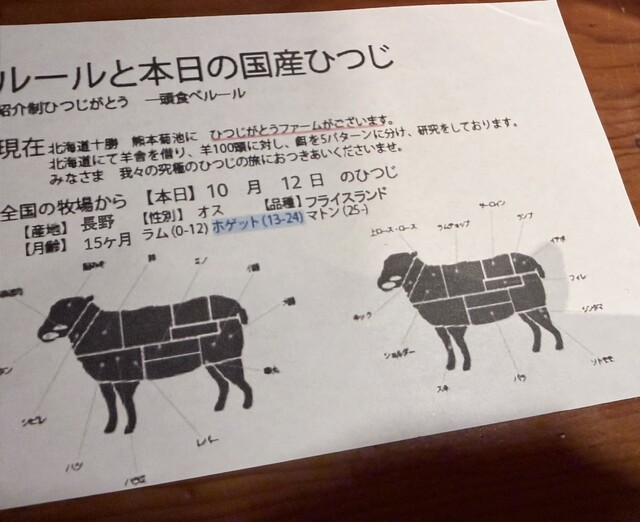 ルールと本日の国産ひつじ
紹介制ひつじがとう 一頭食べルール
現在 北海道十勝 熊本菊池に ひつじがとうファームがございます。
北海道にて羊舎を借り、羊100頭に対し、餌を5パターンに分け、研究をしております。
みなさま 我々の究極のひつじの旅におつきあいくださいませ。
全国の牧場から 【本日】10 月 12 日 のひつじ
【産地】長野 【性別】オス 【品種】フライスランド
【月齢】15ヶ月 ラム(0-12) ホゲット(13-24) マトン(25-)
サーロイン
ランプ
ラムチョップ
上ロース・ロース
フィレ
シンタマ
ネック
ショルダー
ソトモモ
スネ
バラ
ミノ
シビレ
レバー
ハツ